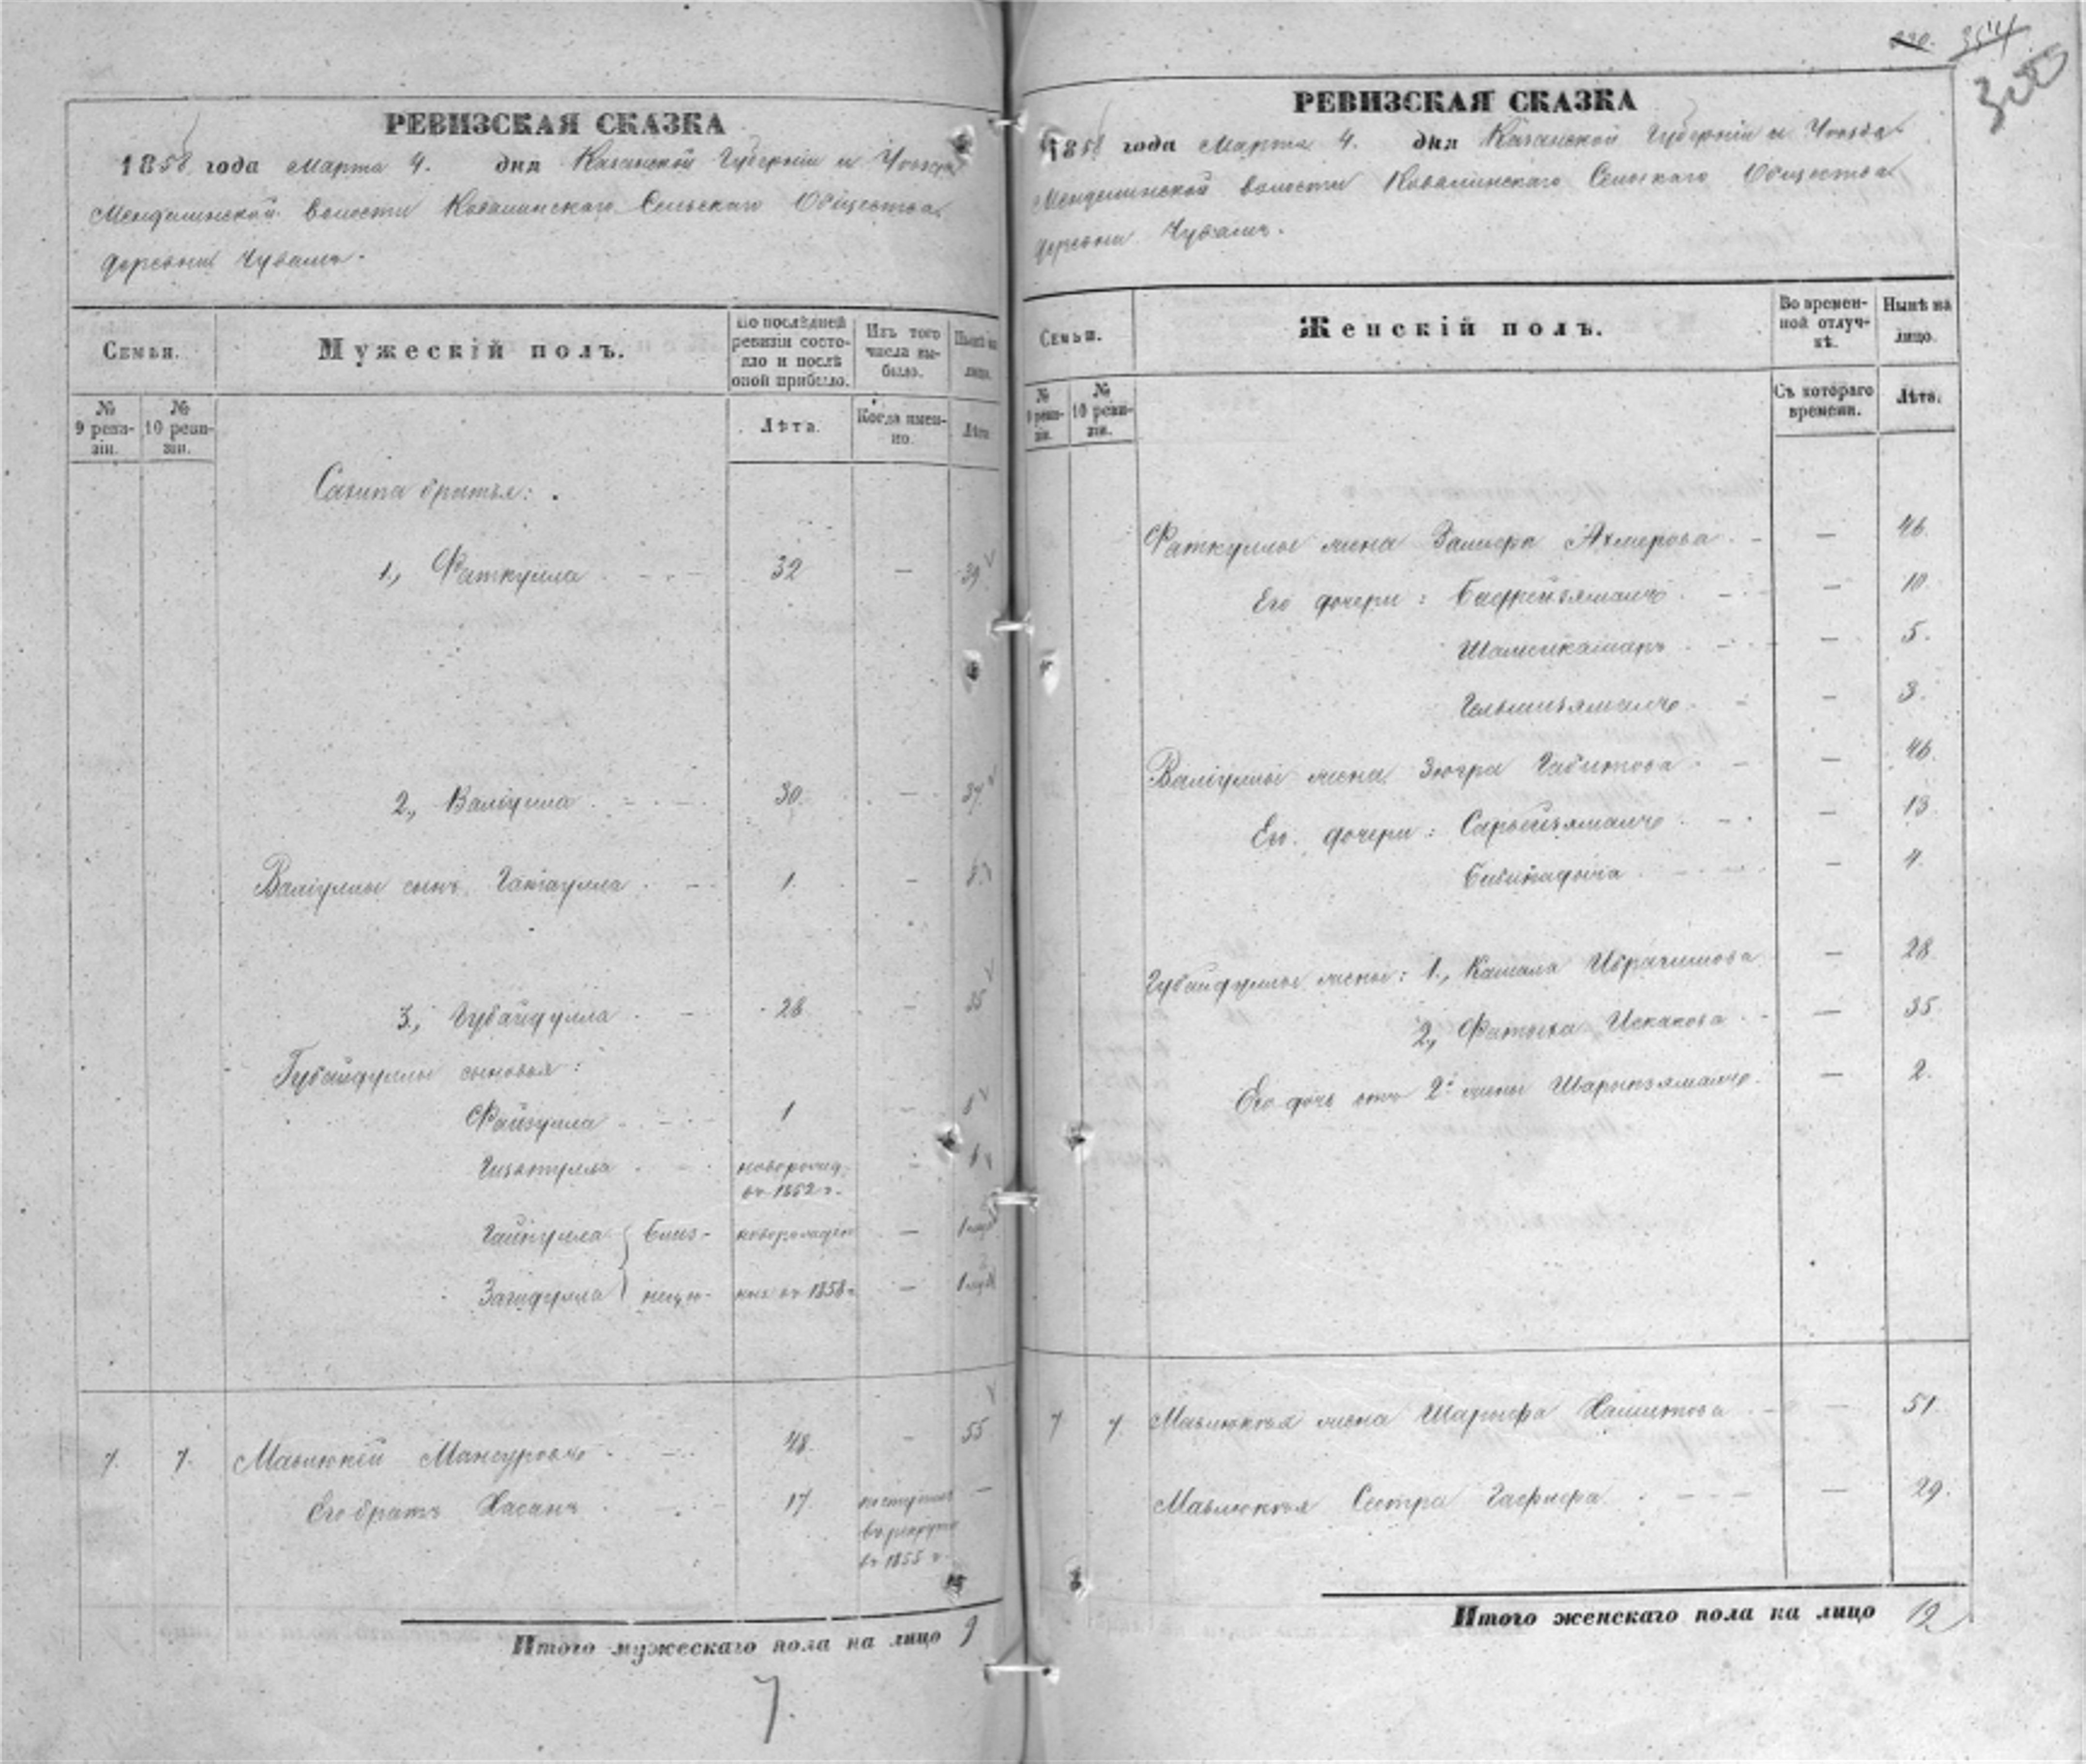 РЕВИЗСКАЯ СКАЗКА
1858 года Марта 4. дня Казанской Губерніи и Уѣзда
Менделинской волости Ковалинскаго Сельскаго Общества
деревни Чували.
Семьи.
Мужескій полъ.
По послѣдней ревизіи состояло и послѣ оной прибыло.
Изъ того числа выбыло.
Нынѣ на лицо.
№ 9 ревизіи.
№ 10 ревизіи.
Лѣта.
Когда именно.
Лѣта
братья:
1., Фаткулла 32 — 39
2., Валіулла 30. — 37.
Валіуллы сынъ 1. — 8.
3., Губайдулла 28 — 35
Губайдуллы сыновья:
Файзулла 1 — 8
Гизятулла новорожд. въ 1852 г. — 6
Гайнулла близ- новорожден —
Загидулла нецы- ные въ 1858 г —
7. 7. Мавлюкѣй Мансуровъ 48. — 55
Его братъ Хасанъ 17. поступилъ въ рекруты въ 1855 г. —
Итого мужескаго пола на лицо 9
7.
354
РЕВИЗСКАЯ СКАЗКА
1858 года Марта 4. дня Казанской Губерніи и Уѣзда
Менделинской волости Ковалинскаго Сельскаго Общества
деревни Чували.
Семьи.
Женскій полъ.
Во временной отлучкѣ.
Нынѣ на лицо.
№ 9 ревизіи.
№ 10 ревизіи.
Съ котораго времени.
Лѣта.
Фаткуллы жена Ахмерова — 46.
Его дочери: — 10.
— 5.
— 3.
Валіуллы жена Зюгра Габитова — 46.
Его дочери: — 13
— 4.
Губайдуллы жены: 1., Камала Ибрагимова — 28.
2., Искакова — 35.
Его дочь отъ 2й жены — 2.
7 7. Мавлюкѣя жена Шарифа Хамитова — 51.
Мавлюкѣя Сестра Гафифа — 29.
Итого женскаго пола на лицо 12